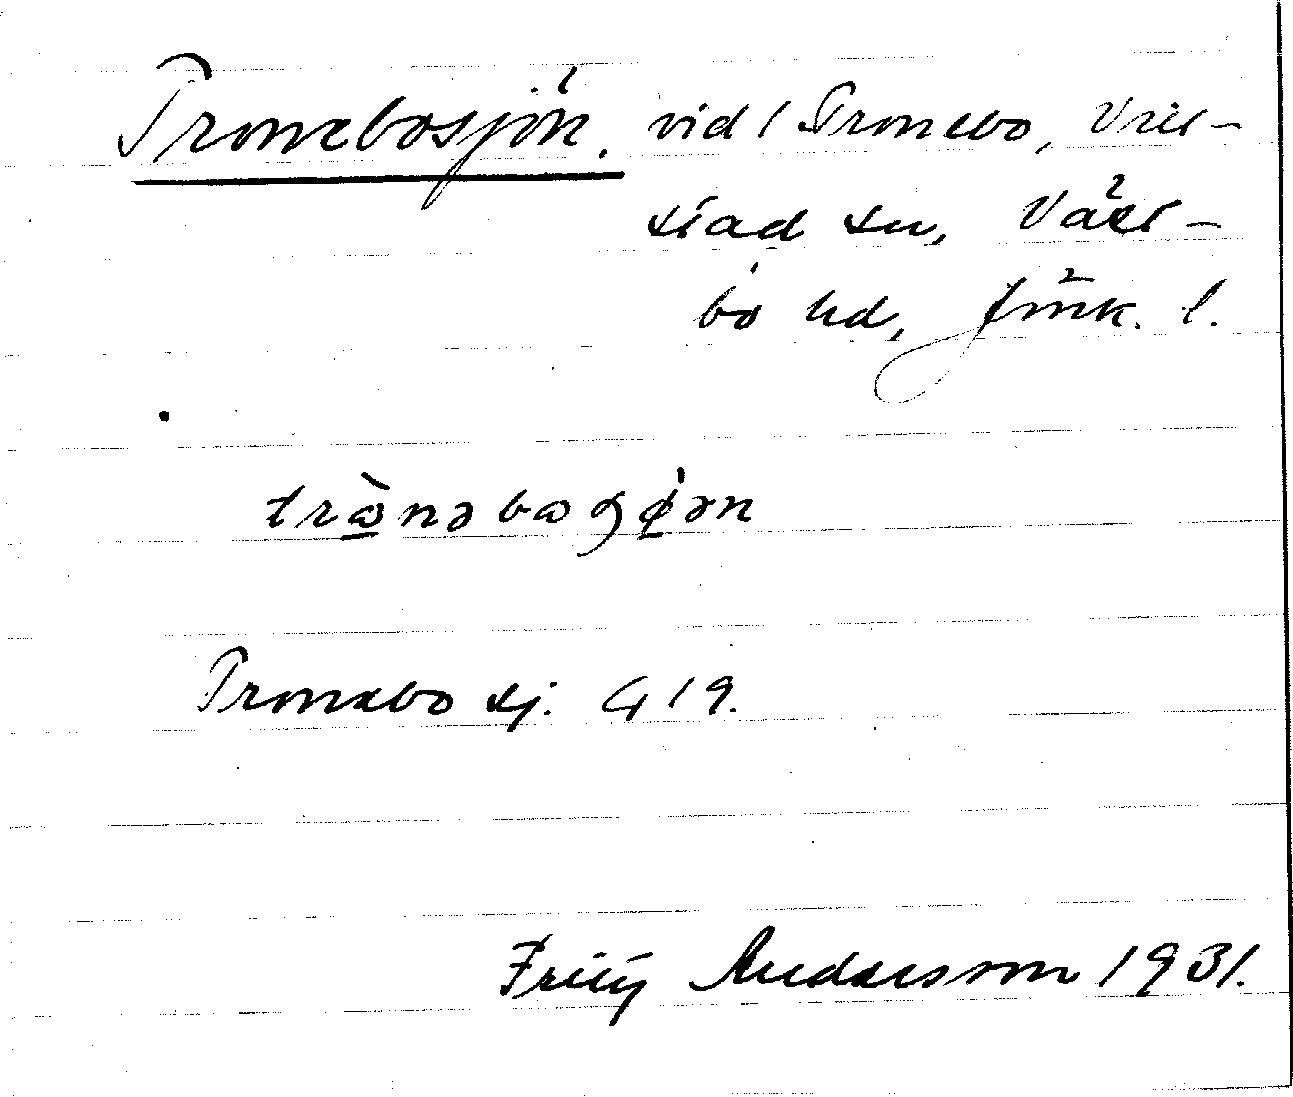 Tronebosjön. vid 1 Tronebo, Vill-
stad sn, Väst-
bo hd, Jönk. l.
trὼ̠nəbωʂǿ̠ən
Tronebo sj. G 19.
Fritz Andersson 1931.